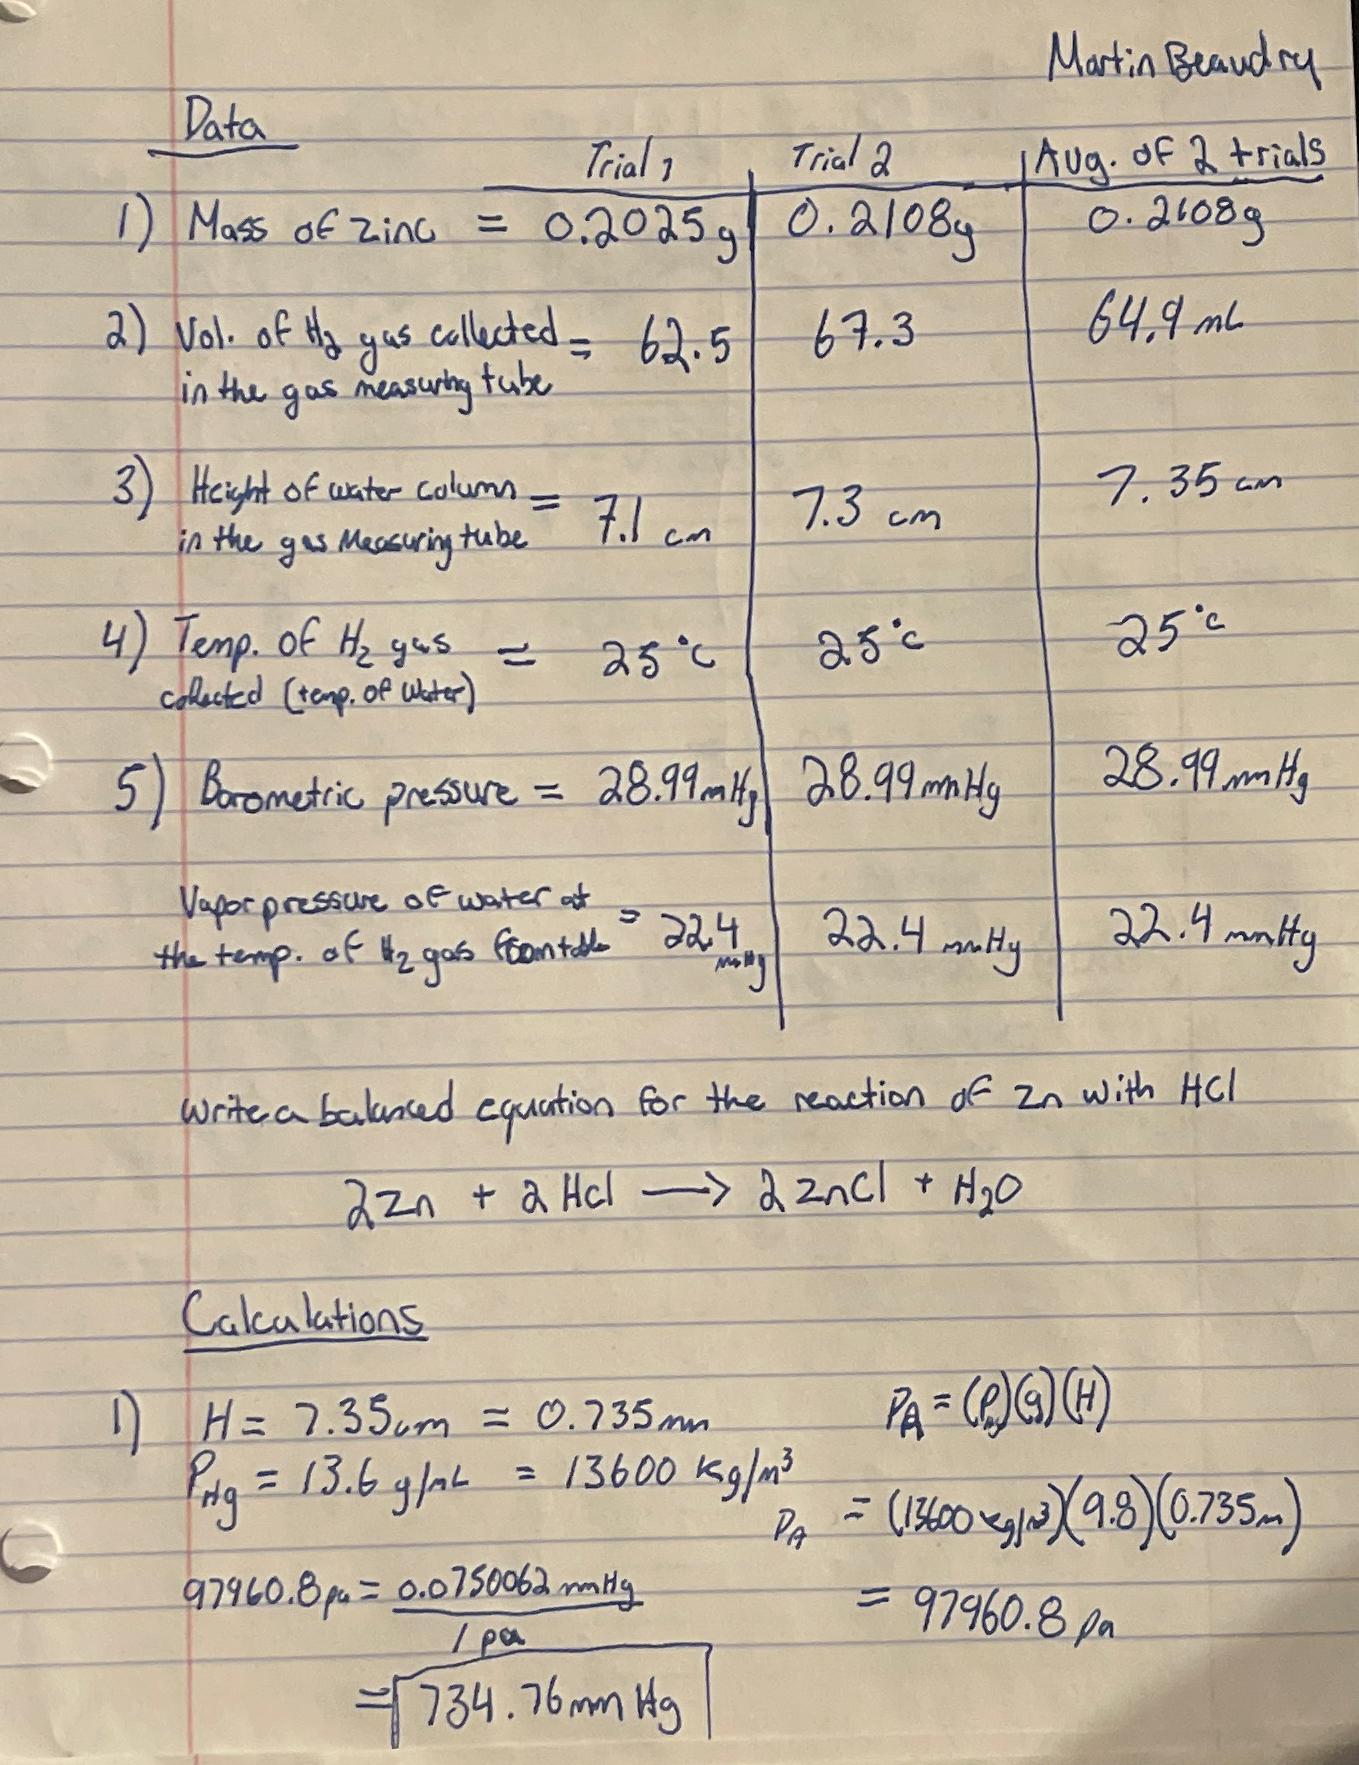 Martin Beaudry
Data
Trial 1 Trial 2 Avg. of 2 trials
1) Mass of zinc = 0.2025g 0.2108g 0.2608g
2) Vol. of H2 gas collected = 62.5 67.3 64.9 mL
in the gas measuring tube
3) Height of water column = 7.1 cm 7.3 cm 7.35 cm
in the gas Measuring tube
4) Temp. of H2 gas = 25°C 25°C 25°C
collected (temp. of water)
5) Barometric pressure = 28.99 mHg 28.99 mmHg 28.99 mmHg
Vapor pressure of water at
the temp. of H2 gas from table = 22.4 mmHg 22.4 mmHg 22.4 mmHg
Write a balanced equation for the reaction of Zn with HCl
2Zn + 2HCl → 2ZnCl + H2O
Calculations
1) H = 7.35cm = 0.735mm PA = (P)(g)(H)
PHg = 13.6 g/mL = 13600 kg/m³
PA = (13600 kg/m³)(9.8)(0.735m)
97960.8 pa = 0.0750062 mmHg
1 pa
= 97960.8 pa
= 734.76 mm Hg